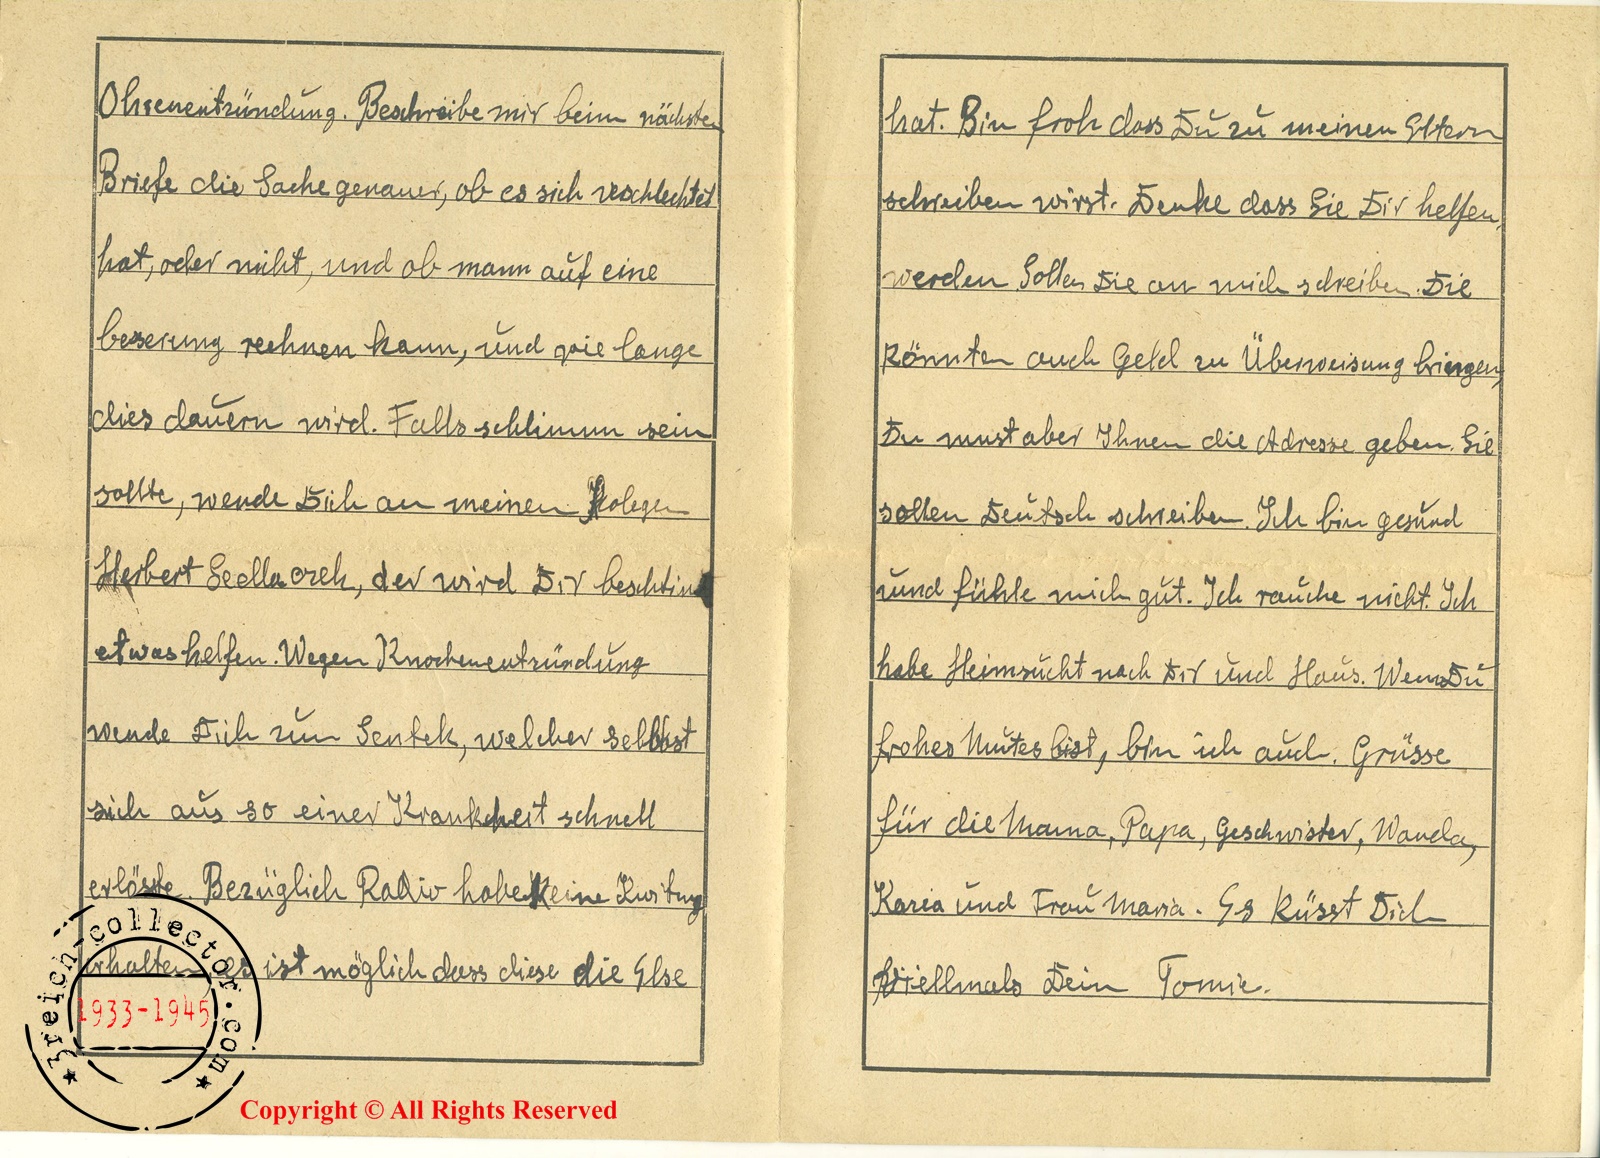 Ohrenentzündung. Beschreibe mir beim nächsten
Briefe die Sache genauer, ob es sich veschlechtet
hat, oder nicht, und ob mann auf eine
besserung rechnen kann, und wie lange
dies dauern wird. Falls schlimm sein
sollte, wende Dich an meinen Kolegen
Herbert Sedlaczek, der wird Dir beschtim
etwas helfen. Wegen Knochenentzündung
wende Dich zum Sentek, welcher selbst
sich aus so einer Krankheit schnell
erlöste. Bezüglich Radio habe keine Kwitung
erhalten es ist möglich dass diese die Else
hat. Bin froh dass Du zu meinen Eltern
schreiben wirst. Denke dass Sie Dir helfen,
werden Sollen Die an mich schreiben. Die
könnten auch Geld zu Überweisung bringen,
Du must aber Ihnen die Adresse geben. Sie
sollen Deutsch schreiben. Ich bin gesund
und fühle mich gut. Ich rauche nicht. Ich
habe Heimsucht nach Dir und Haus. Wenn Du
frohes Mutes bist, bin ich auch. Grüsse
für die Mama, Papa, Geschwister, Wanda,
Kazia und Frau Maria. Es küsst Dich
viellmals Dein Tomie.
3reich-collector.com
1933-1945
Copyright © All Rights Reserved